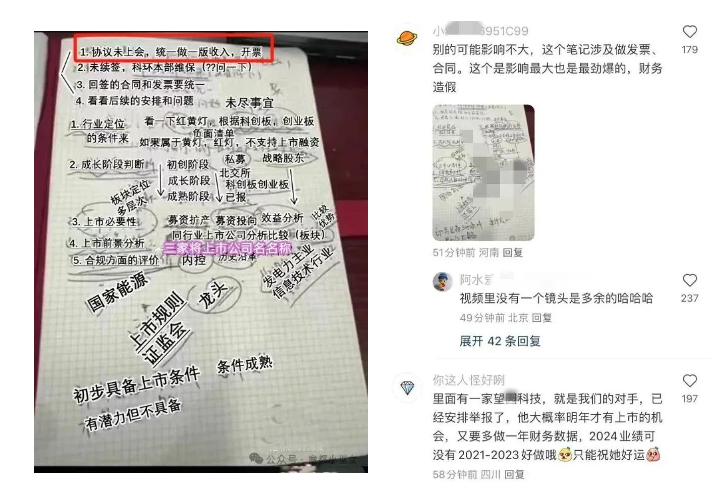 1. 协议未上会，统一做一版收入，开票
2. 未续签，科环本部维保（??问一下）
3. 回签的合同和发票要统一
4. 看看后续的安排和问题
未尽事宜
1. 行业定位的条件来
看一下红黄灯，根据科创板，创业板
负面清单
如果属于黄灯，红灯，不支持上市融资
2. 成长阶段判断
初创阶段 私募 战略股东
成长阶段 北交所
科创板创业板
成熟阶段 已报
板块定位
多层次
3. 上市必要性
募资扩产 募资投向 效益分析
比较优势
同行业上市公司分析比较（板块）
4. 上市前景分析
三家将上市公司名名称
5. 合规方面的评价
内控 历史沿革
发电力主业
信息技术行业
国家能源
龙头
上市规则
证监会
初步具备上市条件 条件成熟
有潜力但不具备
公众号
小 6951C99
别的可能影响不大，这个笔记涉及做发票、
合同。这个是影响最大也是最劲爆的，财务
造假
179
51分钟前 河南 回复
阿水
视频里没有一个镜头是多余的哈哈哈
237
49分钟前 北京 回复
展开 42 条回复
你这人怪好咧
里面有一家望 科技，就是我们的对手，已
经安排举报了，他大概率明年才有上市的机
会，又要多做一年财务数据，2024业绩可
没有2021-2023好做哦 只能祝她好运
197
58分钟前 四川 回复